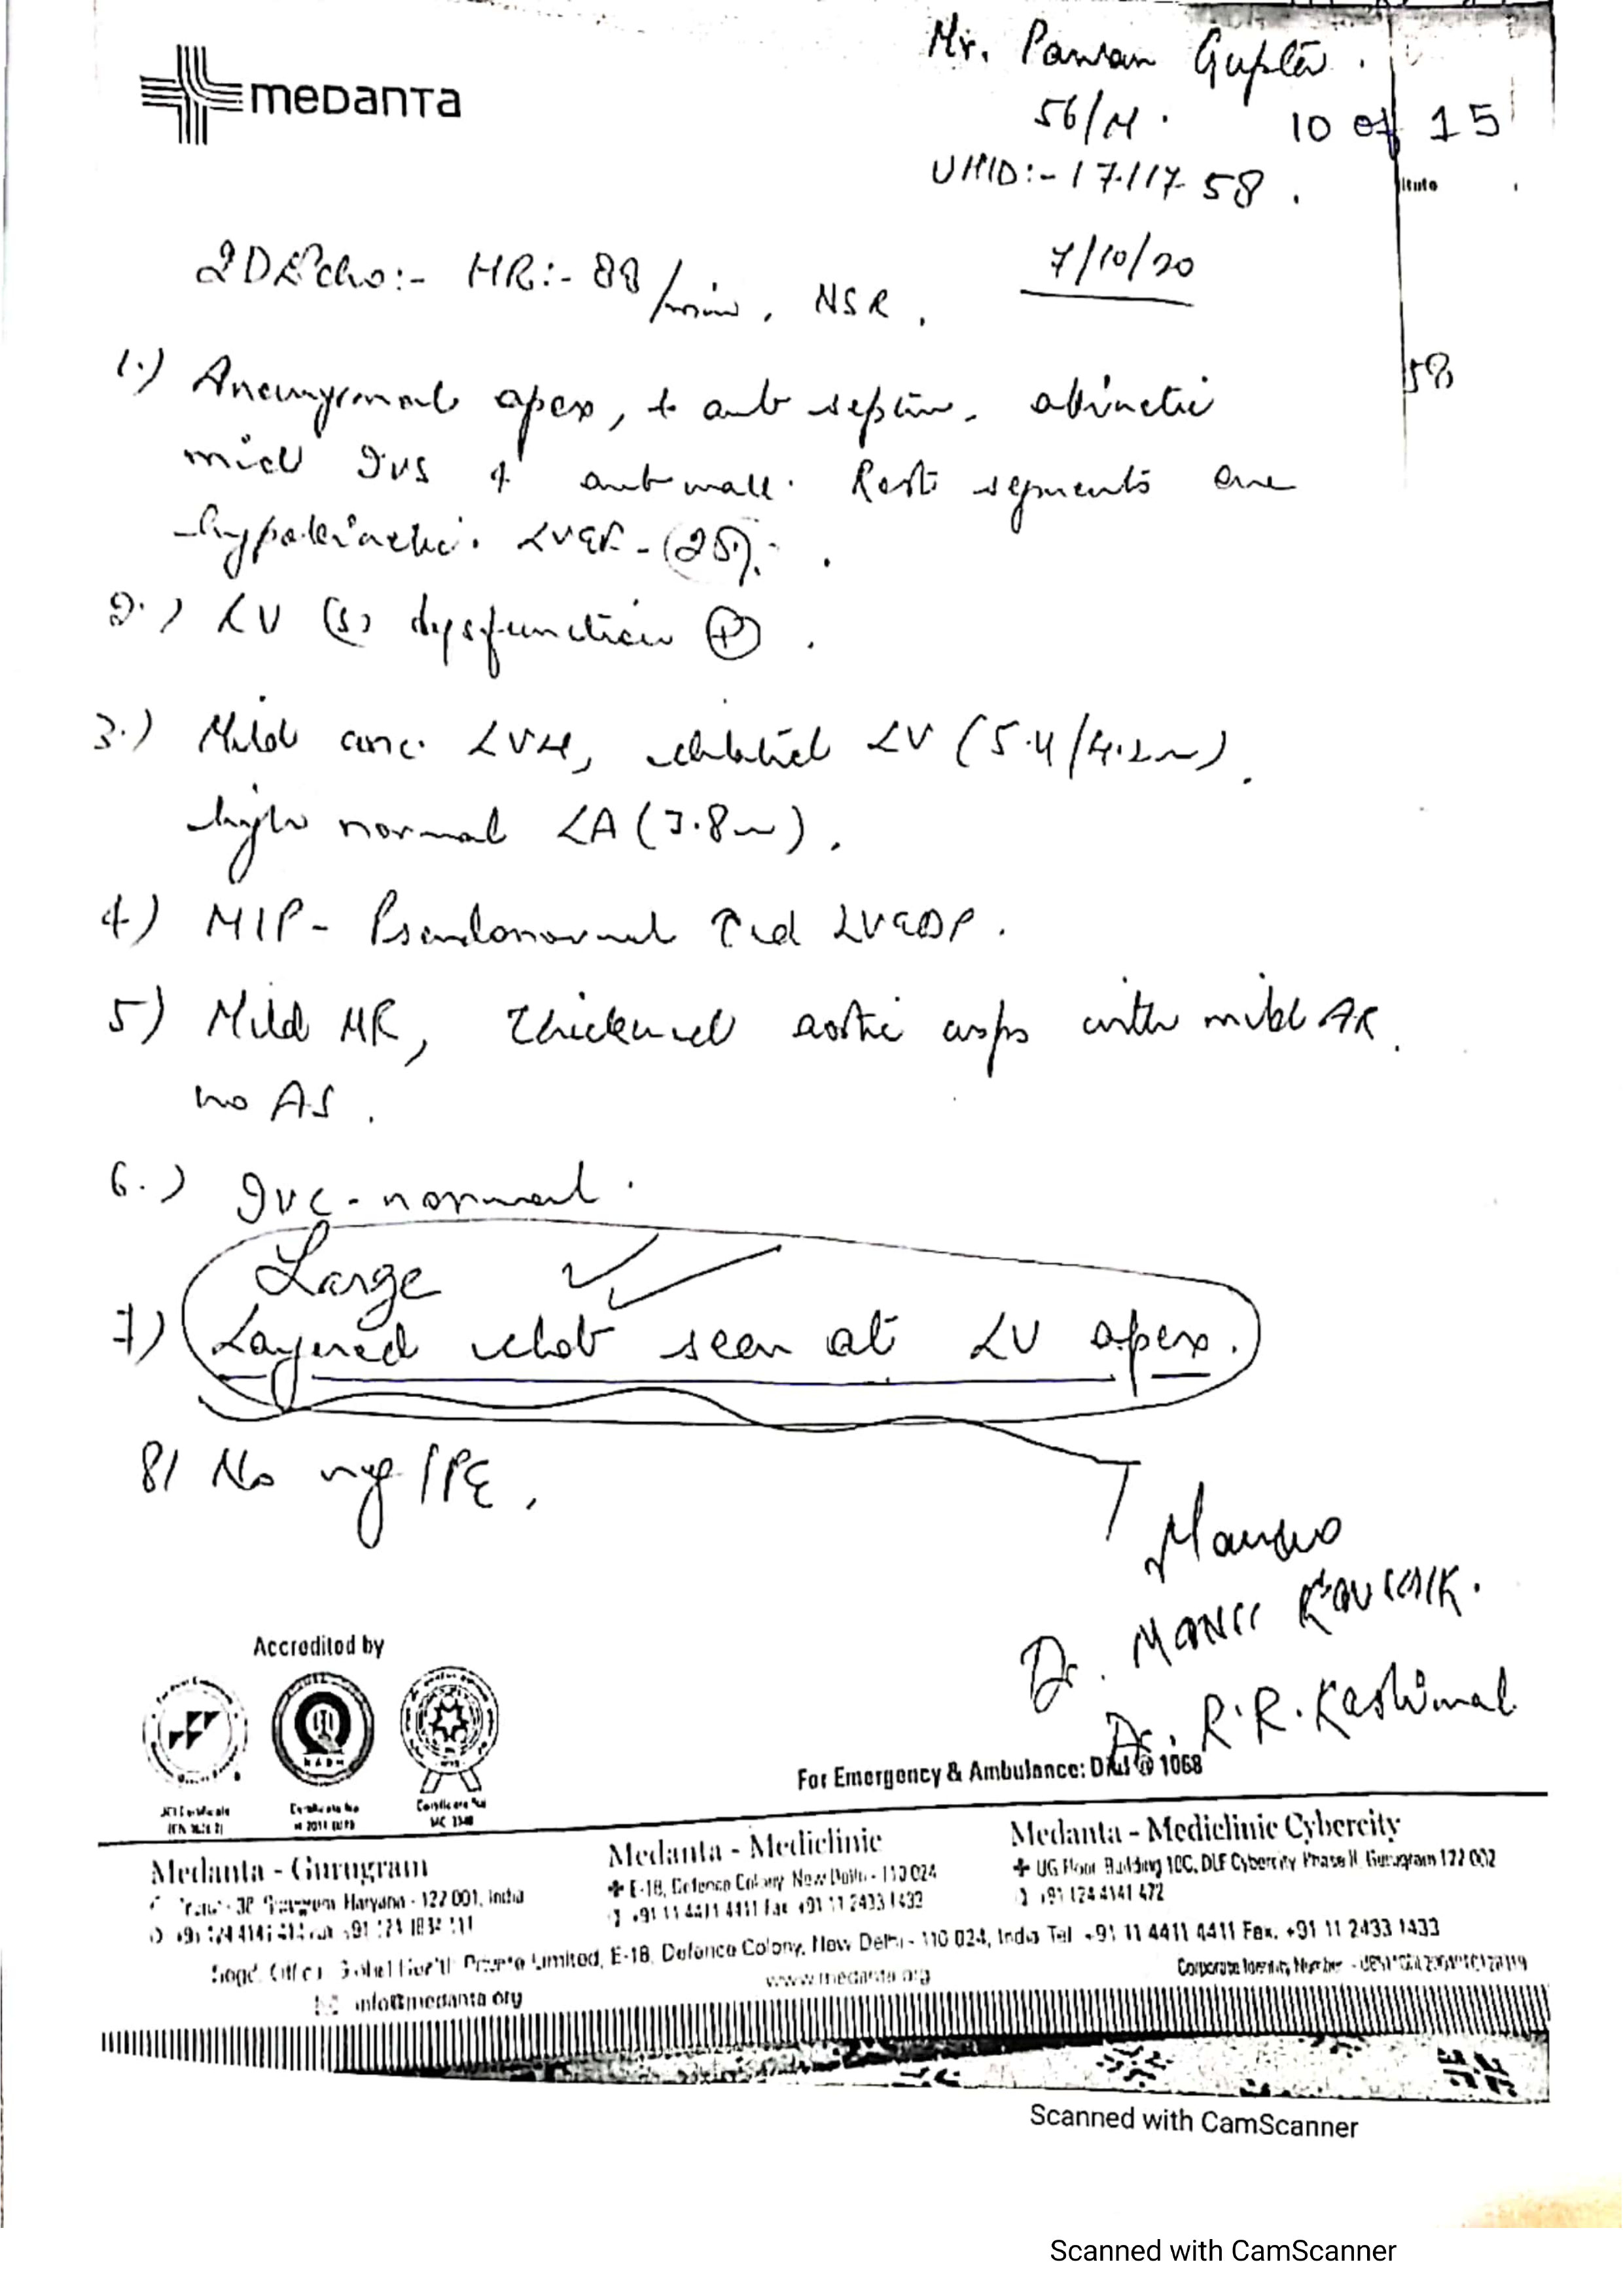 medanta
Mr. Pawan Gupta.
56/M.
10 of 15
UHID:- 17117 58.
itute
7/10/20
2D Echo:- HR:- 88/min, NSR.
58
1.) Aneurysmal apex, & ant septum. akinetic
mid IVS & ant wall. Rest segments are
hypokinetic. LVEF-(25%).
2.) LV (s) dysfunction ⊕.
3.) Mild conc. LVH, dilated LV (5.4/4.2cm).
high normal LA (3.8cm).
4) MIP- Pseudonormal ↑ed LVEDP.
5) Mild MR, thickened aortic cusps with mild AR.
no AS.
6.) IVC-normal.
Large
7) Layered clot seen at LV apex.
8) No veg/PE.
Dr.
Dr. R.R. Kasliwal
Accredited by
For Emergency & Ambulance: Dial @ 1068
Medanta - Gurugram
Haryana - 122 001, India
Medanta - Mediclinic
E-18, Defence Colony New Delhi - 110 024
+91 11 4411 4411 Fax +91 11 2433 1433
Medanta - Mediclinic Cybercity
UG Floor Building 10C, DLF Cybercity Phase II, Gurugram 122 002
+91 124 4141 472
Regd. Office Global Health Private Limited, E-18, Defence Colony, New Delhi - 110 024, India Tel +91 11 4411 4411 Fax. +91 11 2433 1433
www.medanta.org
Corporate Identity Number -
info@medanta.org
Scanned with CamScanner
Scanned with CamScanner